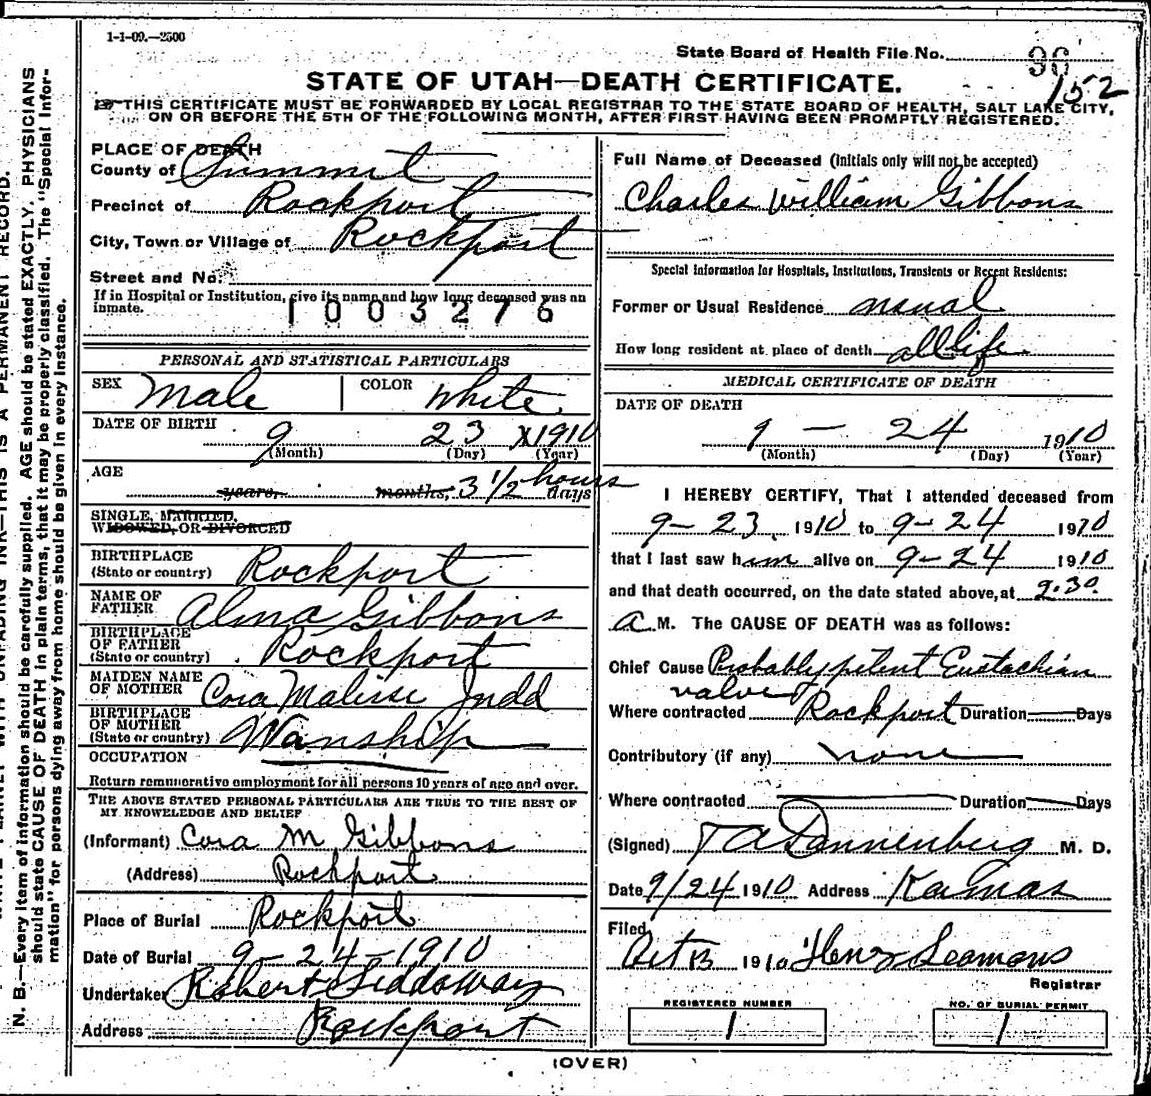 1-1-09.—2500
State Board of Health File No. 96
152
STATE OF UTAH—DEATH CERTIFICATE.
THIS CERTIFICATE MUST BE FORWARDED BY LOCAL REGISTRAR TO THE STATE BOARD OF HEALTH, SALT LAKE CITY,
ON OR BEFORE THE 5TH OF THE FOLLOWING MONTH, AFTER FIRST HAVING BEEN PROMPTLY REGISTERED.
PLACE OF DEATH
County of Summit
Precinct of Rockport
City, Town or Village of Rockport
Street and No.
If in Hospital or Institution, give its name and how long deceased was an
inmate.
1003276
PERSONAL AND STATISTICAL PARTICULARS
SEX Male COLOR White
DATE OF BIRTH
9 23 1910
(Month) (Day) (Year)
AGE
years, months, 3 1/2 hours days
SINGLE, MARRIED,
WIDOWED, OR DIVORCED
BIRTHPLACE
(State or country) Rockport
NAME OF
FATHER Alma Gibbons
BIRTHPLACE
OF FATHER
(State or country) Rockport
MAIDEN NAME
OF MOTHER Cora Malisse Judd
BIRTHPLACE
OF MOTHER
(State or country) Wanship
OCCUPATION
Return remunerative employment for all persons 10 years of age and over.
THE ABOVE STATED PERSONAL PARTICULARS ARE TRUE TO THE BEST OF
MY KNOWLEDGE AND BELIEF
(Informant) Cora M Gibbons
(Address) Rockport
Place of Burial Rockport
Date of Burial 9-24-1910
Undertaker Robert Siddoway
Address Rockport
Full Name of Deceased (Initials only will not be accepted)
Charles William Gibbons
Special Information for Hospitals, Institutions, Transients or Recent Residents:
Former or Usual Residence usual
How long resident at place of death all life
MEDICAL CERTIFICATE OF DEATH
DATE OF DEATH
9 — 24 1910
(Month) (Day) (Year)
I HEREBY CERTIFY, That I attended deceased from
9-23, 1910 to 9-24 1910
that I last saw him alive on 9-24 1910
and that death occurred, on the date stated above, at 9.30
A M. The CAUSE OF DEATH was as follows:
Chief Cause Probably patent Eustachian
valve
Where contracted Rockport Duration Days
Contributory (if any) none
Where contracted Duration Days
(Signed) T A Dannenberg M. D.
Date 9/24 1910 Address Kamas
Filed
Oct 13 1910 Henry Seamons
Registrar
REGISTERED NUMBER
1
NO. OF BURIAL PERMIT
1
(OVER)
RECORD.
N. B.—Every item of information should be carefully supplied. AGE should be stated EXACTLY. PHYSICIANS
should state CAUSE OF DEATH in plain terms, that it may be properly classified. The "Special Infor-
mation" for persons dying away from home should be given in every instance.